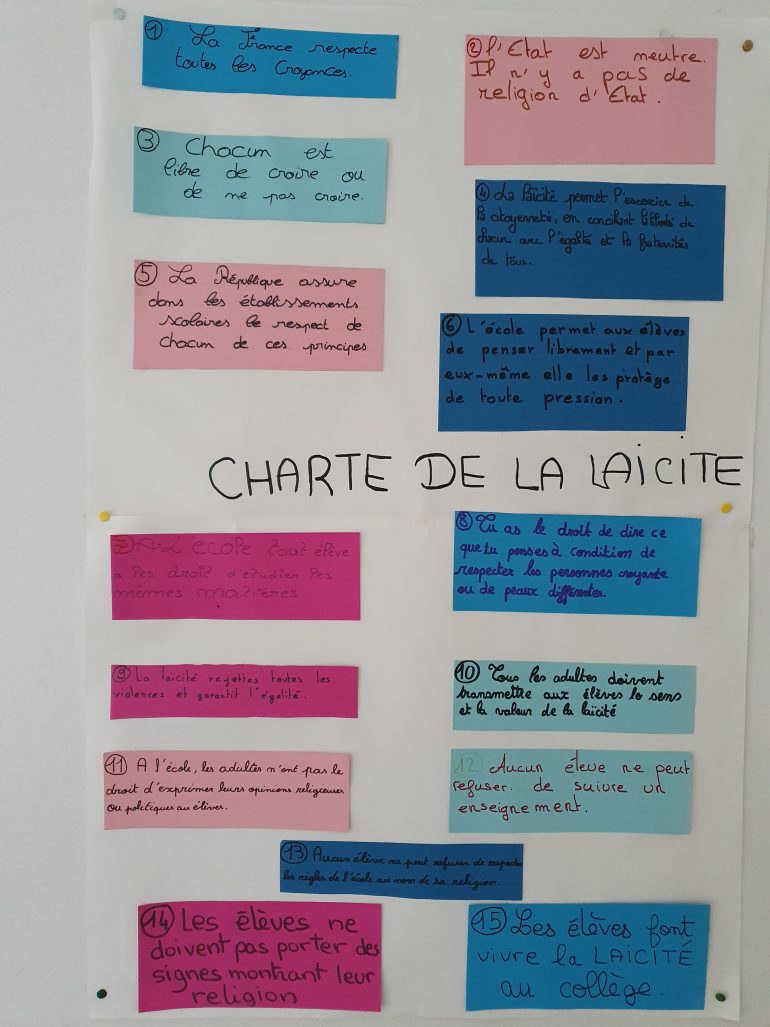 ① La France respecte
toutes les Croyances.
② l'Etat est neutre.
Il n'y a pas de
religion d'Etat.
③ Chacun est
libre de croire ou
de ne pas croire.
④ La laïcité permet l'exercice de
la citoyenneté, en conciliant la liberté de
chacun avec l'égalité et la fraternités
de tous.
⑤ La République assure
dans les établissements
scolaires le respect de
chacun de ces principes
⑥ L'école permet aux élèves
de penser librement et par
eux-même elle les protège
de toute pression.
CHARTE DE LA LAICITE
⑦ A L'école tout élève
à les droit d'étudier les
mêmes matières
⑧ Tu as le droit de dire ce
que tu penses à condition de
respecter les personnes croyante
ou de peaux différentes.
⑨ La laïcité rejettes toutes les
violences et garantit l'égalité.
⑩ Tous les adultes doivent
transmettre aux élèves le sens
et la valeur de la laïcité
⑪ A l'école, les adultes n'ont pas le
droit d'exprimer leurs opinions religieuses
ou politiques au élèves.
⑫ Aucun éleve ne peut
refuser. de suivre un
enseignement.
⑬ Aucun élève ne peut refuser de respecter
les règles de l'école au nom de sa religion.
⑭ Les élèves ne
doivent pas porter des
signes montrant leur
religion
⑮ Les élèves font
vivre la LAICITÉ
au collège.